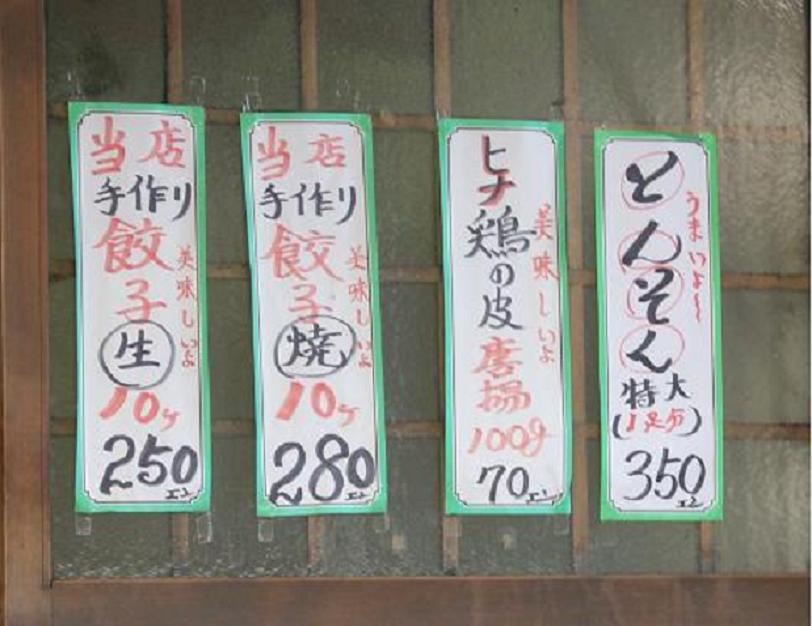 当店
手作り
餃子
生
10ケ
250エン
美味しいよ
当店
手作り
餃子
焼
10ケ
280エン
美味しいよ
ヒナ鶏の皮
唐揚
100g
70エン
美味しいよ
とんそく
特大
(1足分)
350エン
うまいよ〜